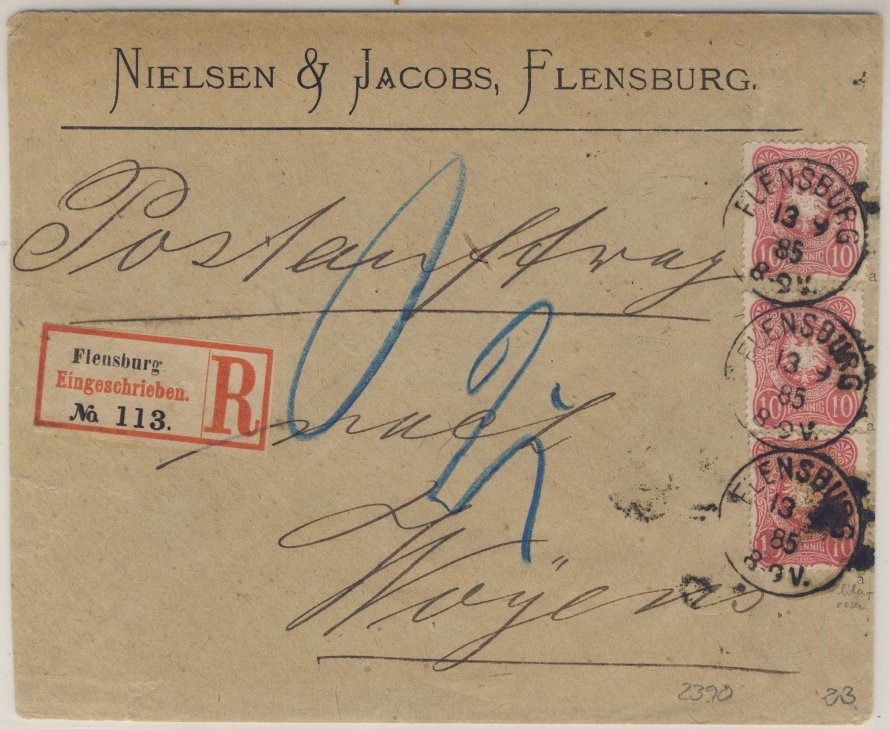 NIELSEN & JACOBS, FLENSBURG.
Postauftrag
Flensburg
Eingeschrieben.
No. 113.
R
nach
Woÿens
FLENSBURG
13 9
85
8-9V.
10 PFENNIG 10
FLENSBURG
13 9
85
8-9V.
10 10
FLENSBURG
13
85
8-9V.
PFENNIG 10
a
a
a
lila-
rosa
2390
23